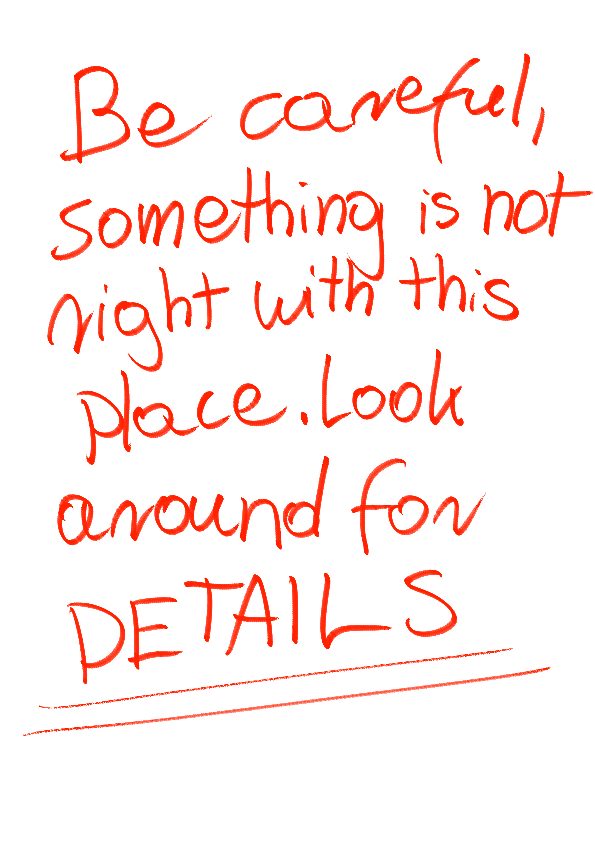 Be careful,
something is not
right with this
place. Look
around for
DETAILS